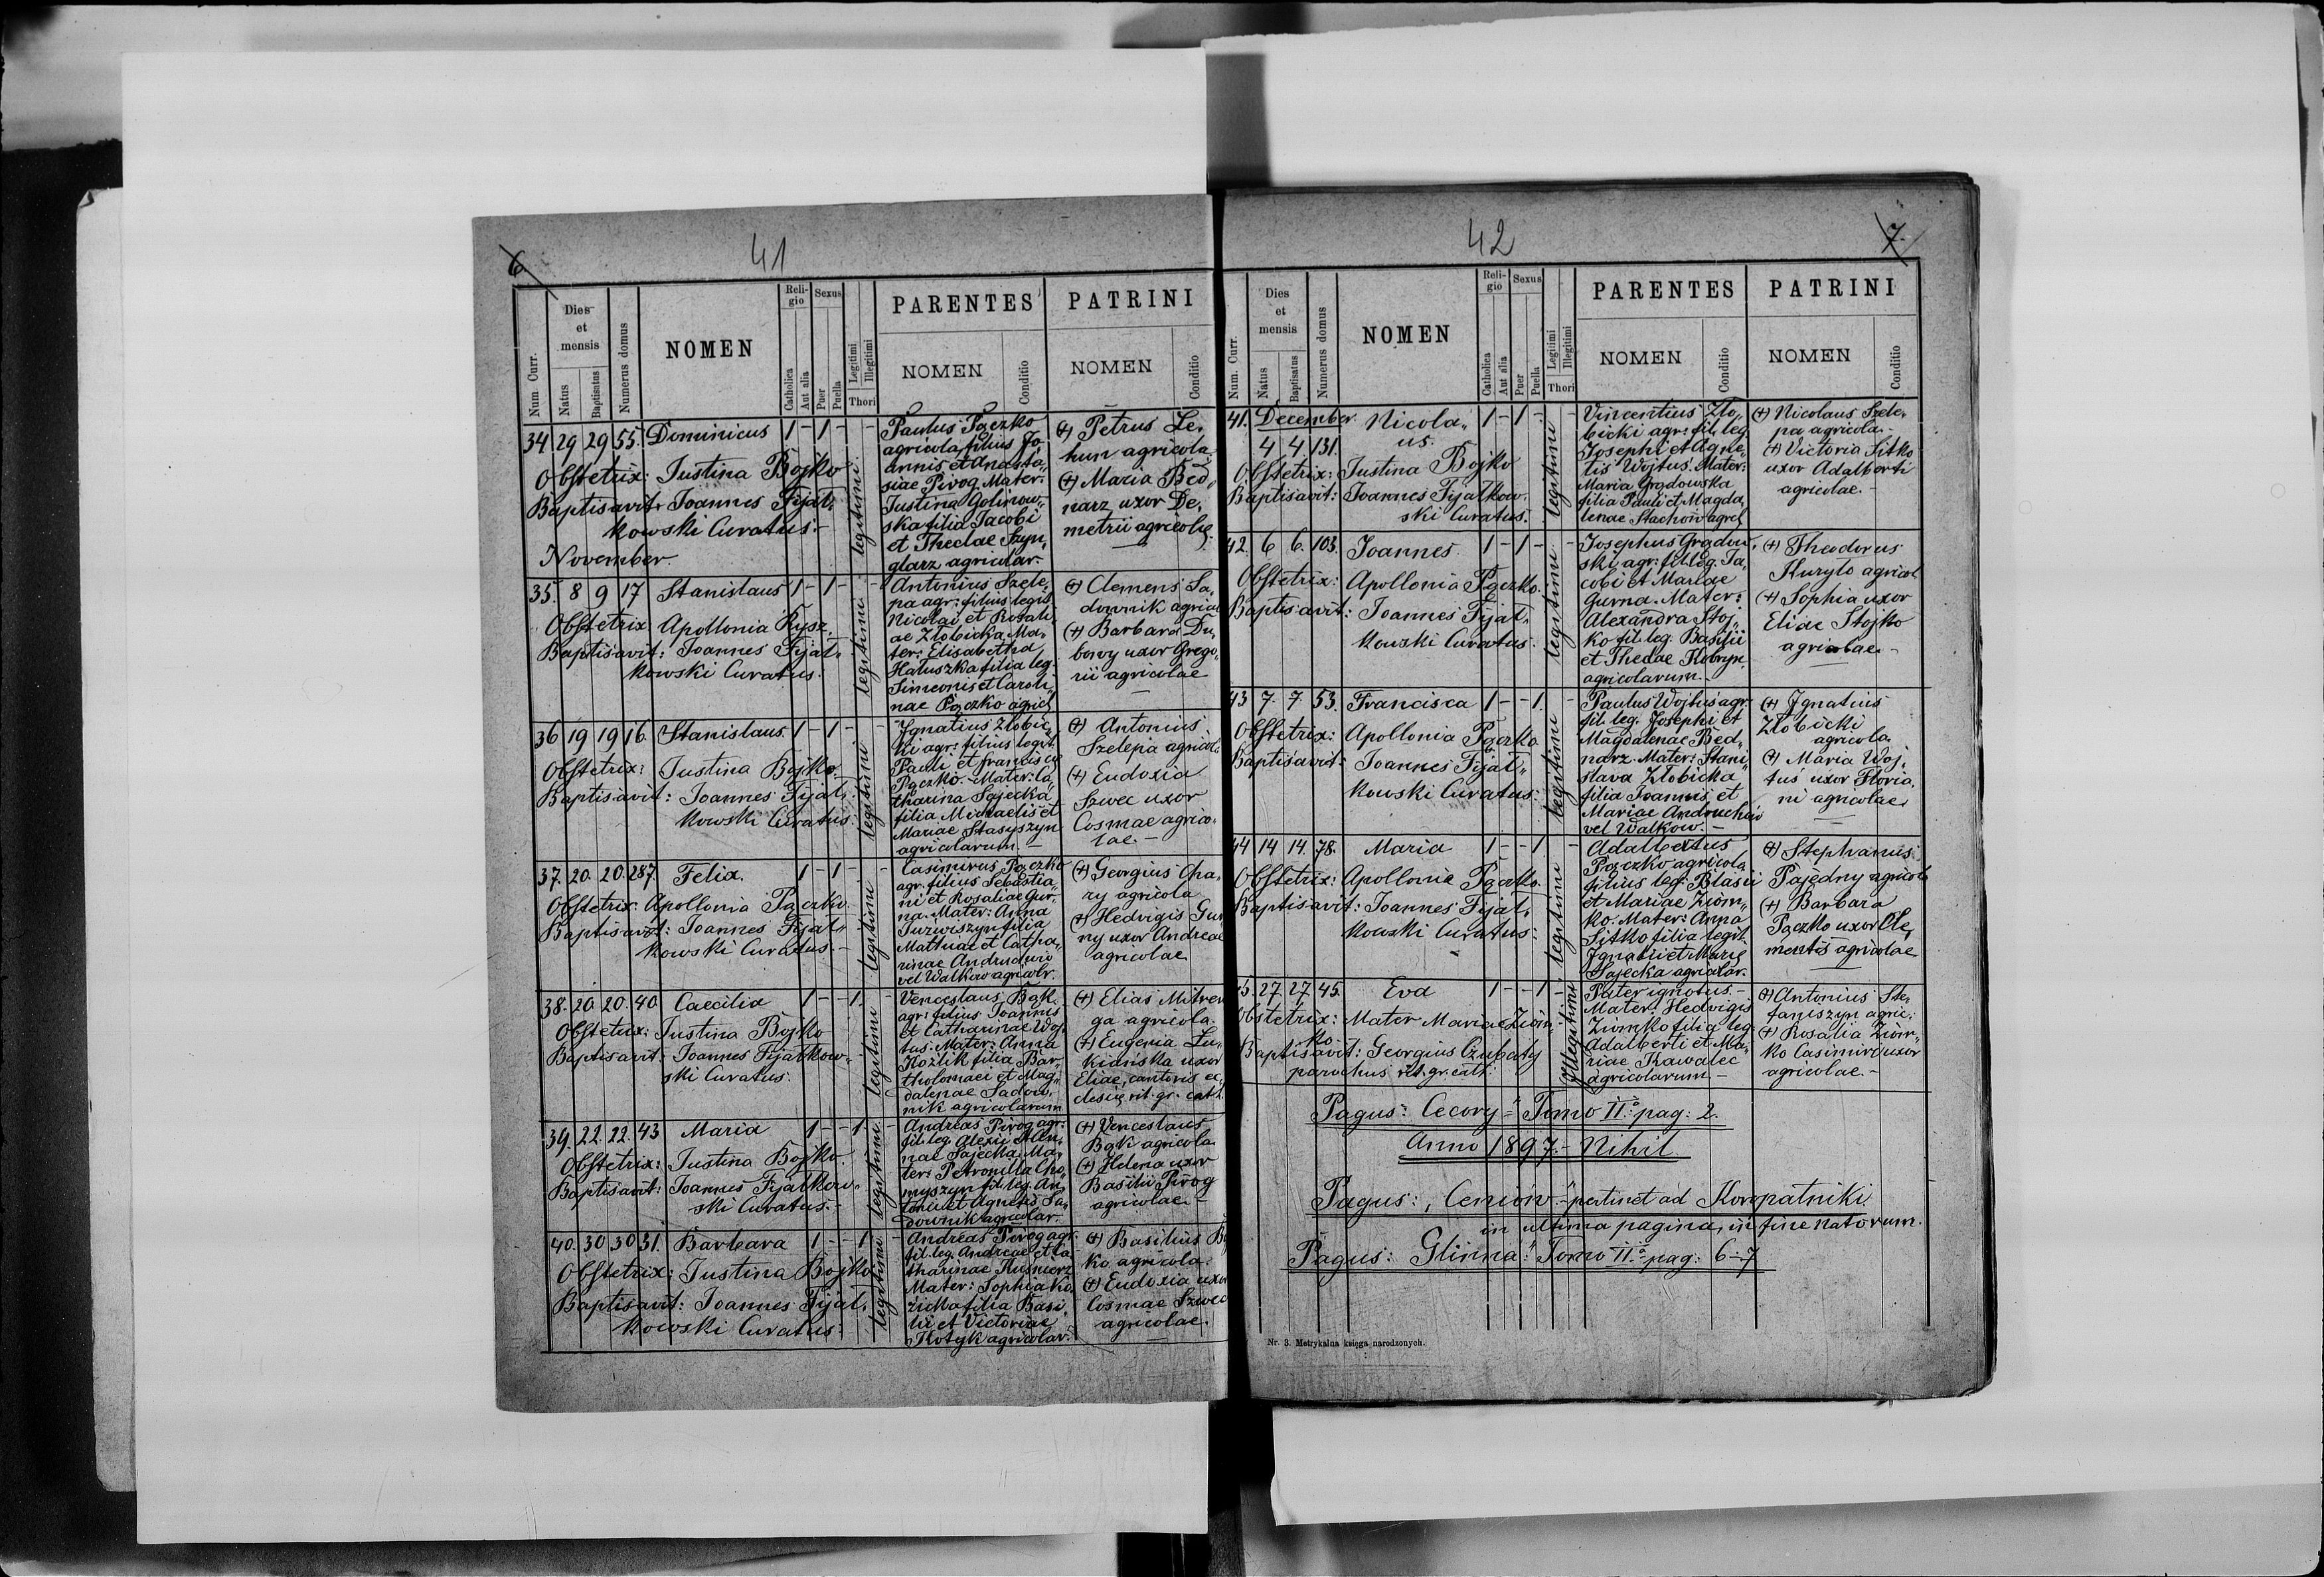 6
41
Num. Curr.
Dies et mensis
Natus
Baptisatus
Numerus domus
NOMEN
Reli-gio
Catholica
Aut alia
Sexus
Puer
Puella
Legitimi
Illegitimi
Thori
PARENTES
NOMEN
Conditio
PATRINI
NOMEN
Conditio
34 29 29 55. Dominicus 1 - 1 - -
Obstetrix: Justina Bojko
Baptisavit: Joannes Fijał-
kowski Curatus.-
legitimi
Paulus Pączko
agricola, filius Jo-
annis et Anasta-
siae Pirog. Mater:
Justina Golinow-
ska filia Jacobi
et Theclae Szyn-
glarz agricolar.
(+) Petrus Le-
hun agricola.
(+) Maria Bed-
narz uxor De-
metrii agricolę.
November
35. 8 9 17 Stanislaus 1 - 1 - -
Obstetrix Apollonia Rysz.
Baptisavit: Joannes Fijał-
kowski Curatus.
legitimi
Antonius Szele-
pa agr: filius legit.
Nicolai et Rosali-
ae Złobicka. Ma-
ter: Elisabetha
Hałuszka filia leg.
Simeonis et Caroli-
nae Pączko agricl
(+) Clemens Sa-
downik agricol
(+) Barbara Du-
bowy uxor Grego-
rii agricolae
36 19 19 16. Stanislaus 1 - 1 - -
Obstetrix: Justina Bojko.
Baptisavit: Joannes Fijał-
kowski Curatus.
legitimi
Ignatius Złobic-
ki agr: filius legit.
Pauli et Franciscę
Pączko. Mater: Ca-
tharina Sajecka
filia Michaelis et
Mariae Stasyszyn
agricolarum.-
(+) Antonius
Szelepa agricol.
(+) Eudoxia
Szwec uxor
Cosmae agrico-
lae.-
37. 20. 20. 287. Felix. 1 - 1 - -
Obstetrix: Apollonia Pączko
Baptisavit: Joannes Fijał-
kowski Curatus.-
legitimi
Casimirus Pączko
agr. filius Sebastia-
ni et Rosaliae Gur-
na. Mater: Anna
Jurwiszyn filia
Matthiae et Catha-
rinae Andruchów
vel Walkow agricolr.
(+) Georgius Cha-
ry agricola
(+) Hedvigis Gur
ny uxor Andreae
agricolae
38. 20. 20. 40. Caecilia 1 - - 1. -
Obstetrix: Justina Bojko
Baptisavit: Joannes Fijałkow-
ski Curatus.
legitimi
Venceslaus Bąk
agr: filius Joannis
et Catharinae Woj-
tus. Mater: Anna
Kozlik filia Bar-
tholomaei et Mag-
dalenae Sadow-
nik agricolarum
(+) Elias Mitren
ga agricola.
(+) Eugenia Lu-
kianska uxor
Eliae, cantoris ec-
clesię rit. gr. cath.
39. 22. 22. 43 Maria 1 - - 1. -
Obstetrix: Justina Bojko.
Baptisavit: Joannes Fijałkow-
ski Curatus.-
legitimi
Andreas Pirog agr:
fil. leg. Alexii Hele-
nae Sajecka. Ma-
ter: Petronilla Cho-
myszyn fil. leg. An-
tonii et Agnetis Sa-
downik agricolar.
(+) Venceslaus
Bąk agricola.
(+) Helena uxor
Basilii Pirog
agricolae.-
40. 30 30 31. Barbara 1 - - 1 -
Obstetrix: Justina Bojko
Baptisavit: Joannes Fijał-
kowski Curatus.
legitimi
Andreas Pirog agr.
fil. leg. Andreae et Ca-
tharinae Kusnierz
Mater: Sophia Ko-
zicka filia Basi-
lii et Victoriae
Kotyk agricolar.
(+) Basilius
ko agricola.
(+) Eudoxia uxor
Cosmae Szwec
agricolae.
42
7.
Num. Curr.
Dies et mensis
Natus
Baptisatus
Numerus domus
NOMEN
Reli-gio
Catholica
Aut alia
Sexus
Puer
Puella
Legitimi
Illegitimi
Thori
PARENTES
NOMEN
Conditio
PATRINI
NOMEN
Conditio
41. December. Nicola- 1 - 1 - -
4 4 131. us.
Obstetrix: Justina Bojko
Baptisavit: Joannes Fijałkow-
ski Curatus.
legitimi
Vincentius Zło-
bicki agr: fil. leg.
Josephi et Agne-
tis Wojtus. Mater:
Maria Grądowska
filia Pauli et Magda-
lenae Stachów agrcl
(+) Nicolaus Szele-
pa agricola.-
(+) Victoria Sitko
uxor Adalberti
agricolae.-
42. 6 6. 103. Joannes. 1 - 1 - -
Obstetrix: Apollonia Pączko.
Baptisavit: Joannes Fijał-
kowski Curatus.
legitimi
Josephus Grądow-
ski agr: fil. leg. Ja-
cobi et Mariae
Gurna. Mater:
Alexandra Stoj-
ko fil. leg. Basilii
et Theclae Kobryn.
agricolarum.-
(+) Theodorus
Kuryło agricol
(+) Sophia uxor
Eliae Stojko
agricolae.-
43 7. 7. 53. Francisca 1 - - 1. -
Obstetrix: Apollonia Pączko
Baptisavit: Joannes Fijał-
kowski Curatus.
legitimi
Paulus Wojtus agr.
fil. leg. Josephi et
Magdalenae Bed-
narz. Mater: Stani-
slava Złobicka
filia Joannis et
Mariae Andruchów
vel Walkow.-
(+) Ignatius
Złobicki
agricola.
(+) Maria Woj-
tuś uxor Floria-
ni agricolae
44 14 14. 78. Maria 1 - - 1. -
Obstetrix: Apollonia Pączko.
Baptisavit: Joannes Fijał-
kowski Curatus.
legitimi
Adalbertus
Pączko agricola
filius leg. Blasii
et Mariae Ziom-
ko. Mater: Anna
Sitko filia legit.
Ignatii et Marię
Sajecka agricolar.
(+) Stephanus
Pajedny agricola
(+) Barbara
Pączko uxor Cle-
mentis agricolae
45. 27 27 45. Eva 1 - - 1 -
Obstetrix: Mater Mariae Ziom-
ko.
Baptisavit: Georgius Czubaty
parochus rit. gr. cath.
Illegitimi
Pater ignotus.-
Mater: Hedvigis
Ziomko filia leg.
Adalberti et Ma-
riae Kawalec
agricolarum.-
(+) Antonius Ste-
faniszyn agric.
(+) Rosalia Ziom-
ko Casimiri uxor
agricolae.-
Pagus: Cecory" Tomo II.° pag: 2.
Anno 1897.- Nihil
Pagus: „Ceniów." pertinet ad Koropatniki
in ultima pagina, in fine natorum.
Pagus: Glinna." Tomo II.° pag: 6-7
Nr. 3. Metrykalna księga narodzonych.